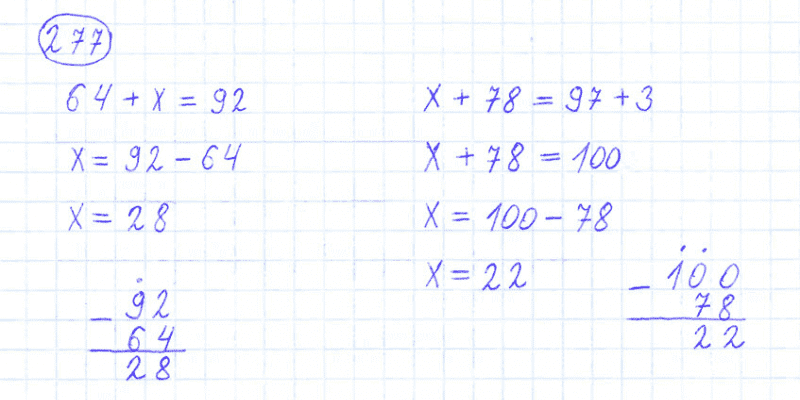 277
64 + x = 92
x = 92 - 64
x = 28
- 92
64
28
x + 78 = 97 + 3
x + 78 = 100
x = 100 - 78
x = 22
- 100
78
22